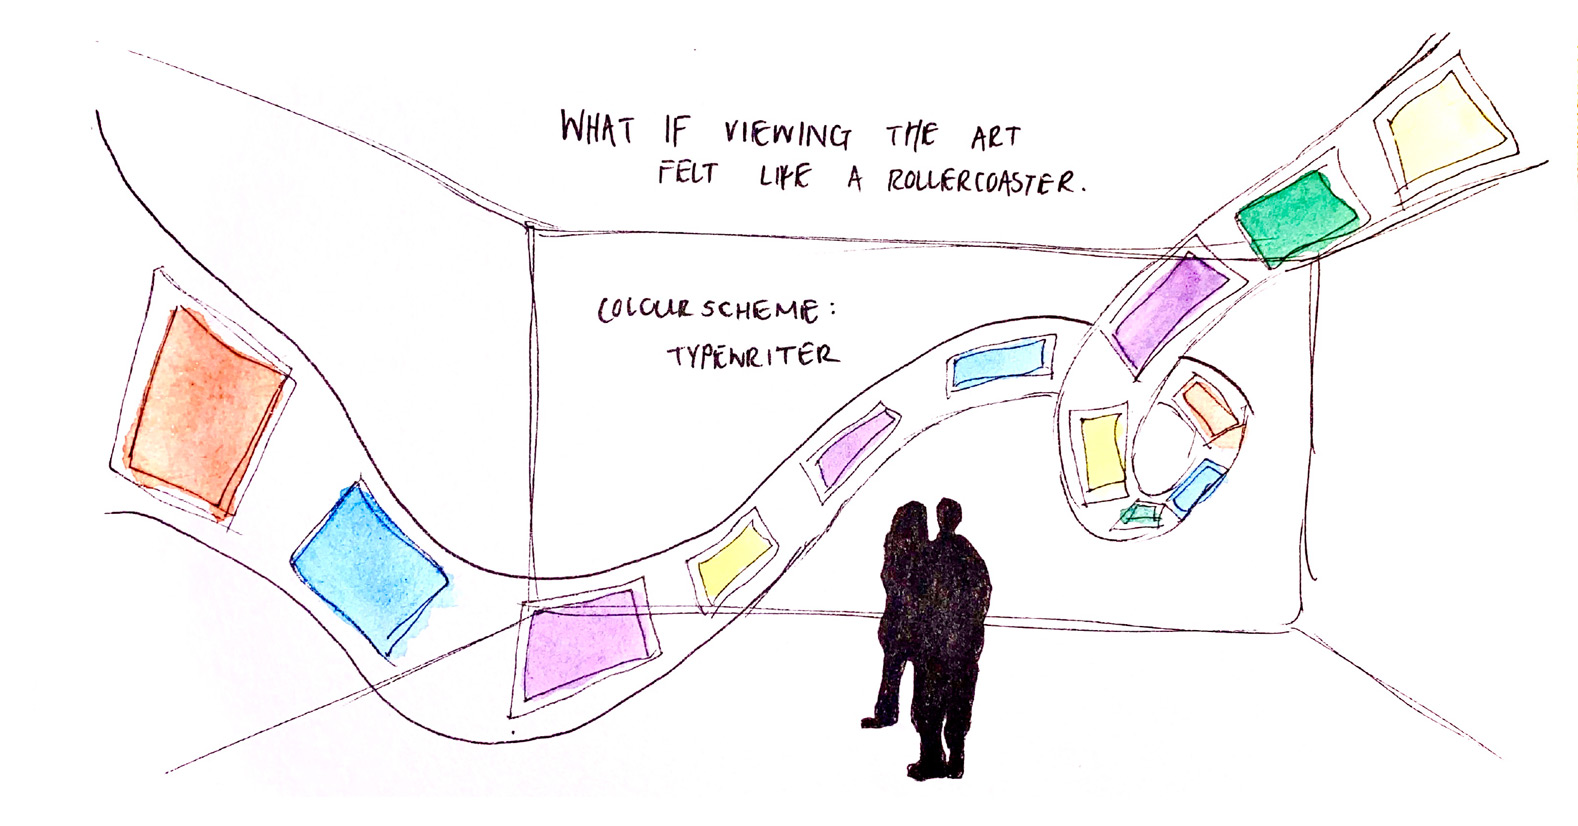 WHAT IF VIEWING THE ART
FELT LIKE A ROLLERCOASTER.
COLOUR SCHEME:
TYPEWRITER